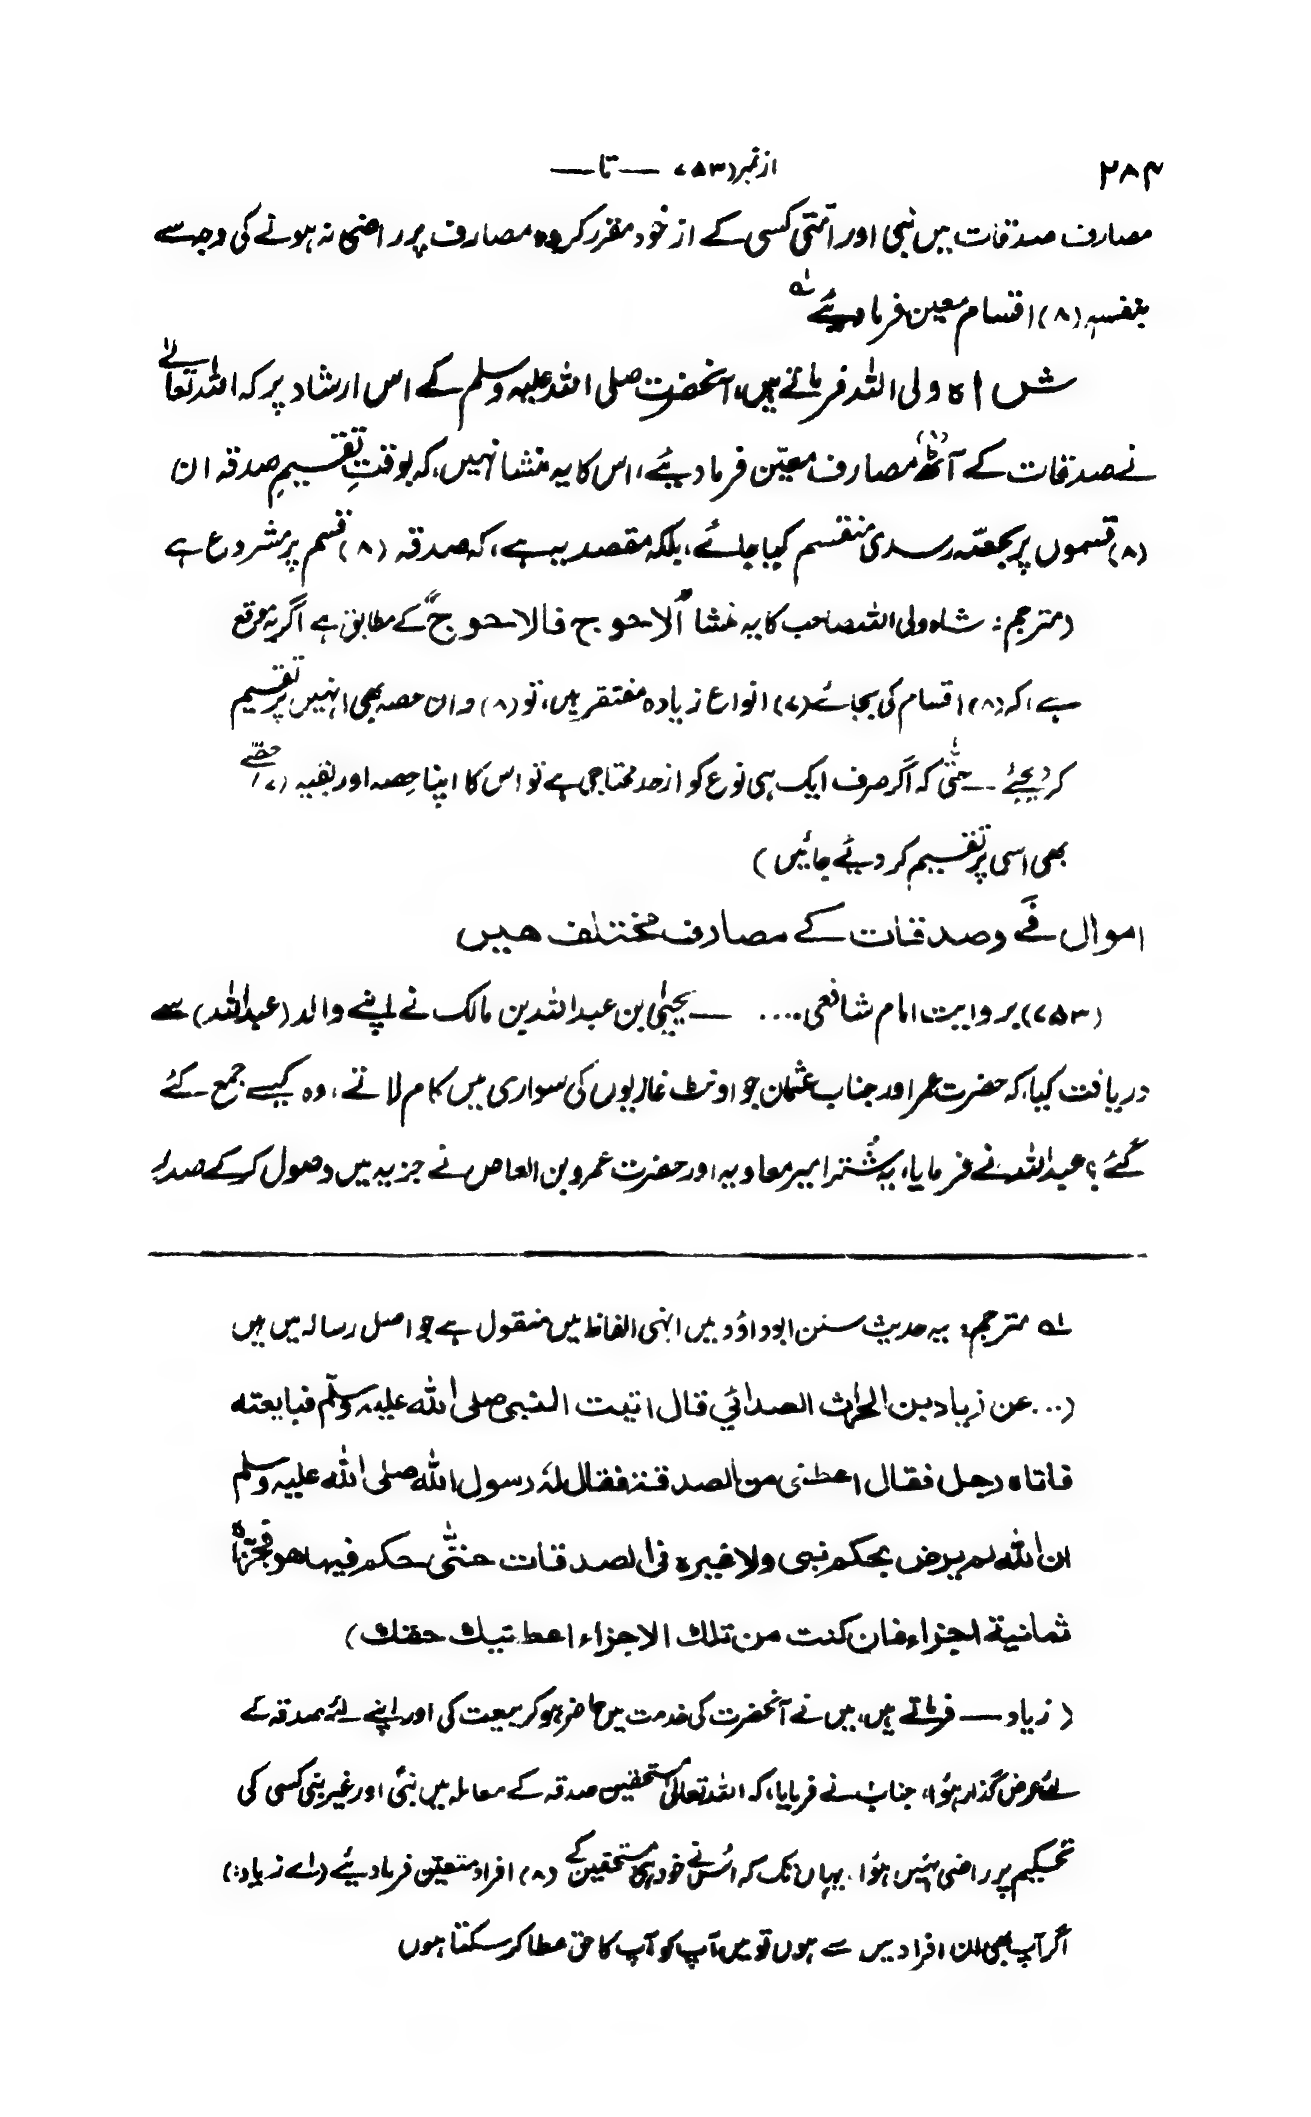 ۲۸۴
از نمبر (۷۵۳ — تا —
مصارف صدقات میں نبی اور اُمتی کسی کے از خود مقرر کردہ مصارف پر راضی نہ ہونے کی وجہ سے
بنفسہٖ (۸) اقسام معین فرما دیئے لہ
شاہ ولی اللہ فرماتے ہیں، آنحضرت صلی اللہ علیہ وسلم کے اس ارشاد پر کہ اللہ تعالےٰ
نے صدقات کے آٹھ (۸) مصارف معیّن فرما دیئے، اس کا یہ منشا نہیں، کہ بوقتِ تقسیمِ صدقہ ان
(۸) قسموں پر بحصّہ رسدی منقسم کیا جائے، بلکہ مقصد یہ ہے، کہ صدقہ (۸) قسم پر مشروع ہے
(مترجم: شاہ ولی اللہ صاحب کا یہ منشا "الاحوج فالاحوج" کے مطابق ہے اگر یہ موقع
ہے، کہ (۸) اقسام کی بجائے (۷) انواع زیادہ مفتقر ہیں، تو (۸) واں حصہ بھی انہیں پر تقسیم
کر دیجئے -- حتّٰی کہ اگر صرف ایک ہی نوع کو از حد محتاجی ہے تو اس کا اپنا حِصہ اور بقیہ (۷) حصّے
بھی اسی پر تقسیم کر دیئے جائیں)
اموال فَے وصدقات کے مصارف مختلف ھیں
(۷۵۳) بروایت امام شافعی .... — یحییٰ بن عبداللہ بن مالک نے اپنے والد (عبداللہ) سے
دریافت کیا، کہ حضرت عمر اور جناب عثمان جو اونٹ غازیوں کی سواری میں کام لاتے، وہ کیسے جمع کئے
گئے؟ عبداللہ نے فرمایا، یہ شُتر امیر معاویہ اور حضرت عمرو بن العاص نے جزیہ میں وصول کر کے صدر
لہ مترجم: یہ حدیث سنن ابوداؤد میں انہی الفاظ میں منقول ہے جو اصل رسالہ میں ہیں
(...عن زیاد بن الحٰرث الصدائي قال اتیت النبی صلی اللہ علیہ وسلّم فبایعته
فاتاہ رجل فقال اعطنی من الصدقة فقال لهٗ رسول اللہ صلی اللہ علیہ وسلم
ان اللہ لم یرض بحکم نبی ولا غیرہ فی الصدقات حتّٰی حکم فیھا ھو فجزّاہ
ثمانیة اجزاء فان کنت من تلك الاجزاء اعطیتك حقك)
(زیاد — فرماتے ہیں، میں نے آنحضرت کی خدمت میں حاضر ہو کر بیعت کی اور اپنے لئے صدقہ کے
لئے عرض گذار ہوُا، جناب نے فرمایا، کہ اللہ تعالیٰ مستحقین صدقہ کے معاملہ میں نبی اور غیر نبی کسی کی
تحکیم پر راضی نہیں ہوُا، یہاں تک کہ اُس نے خود ہی مستحقین کے (۸) افراد متعیّن فرما دیئے (اے زیاد:)
اگر آپ بھی ان افراد میں سے ہوں تو میں آپ کو آپ کا حق عطا کر سکتا ہوں